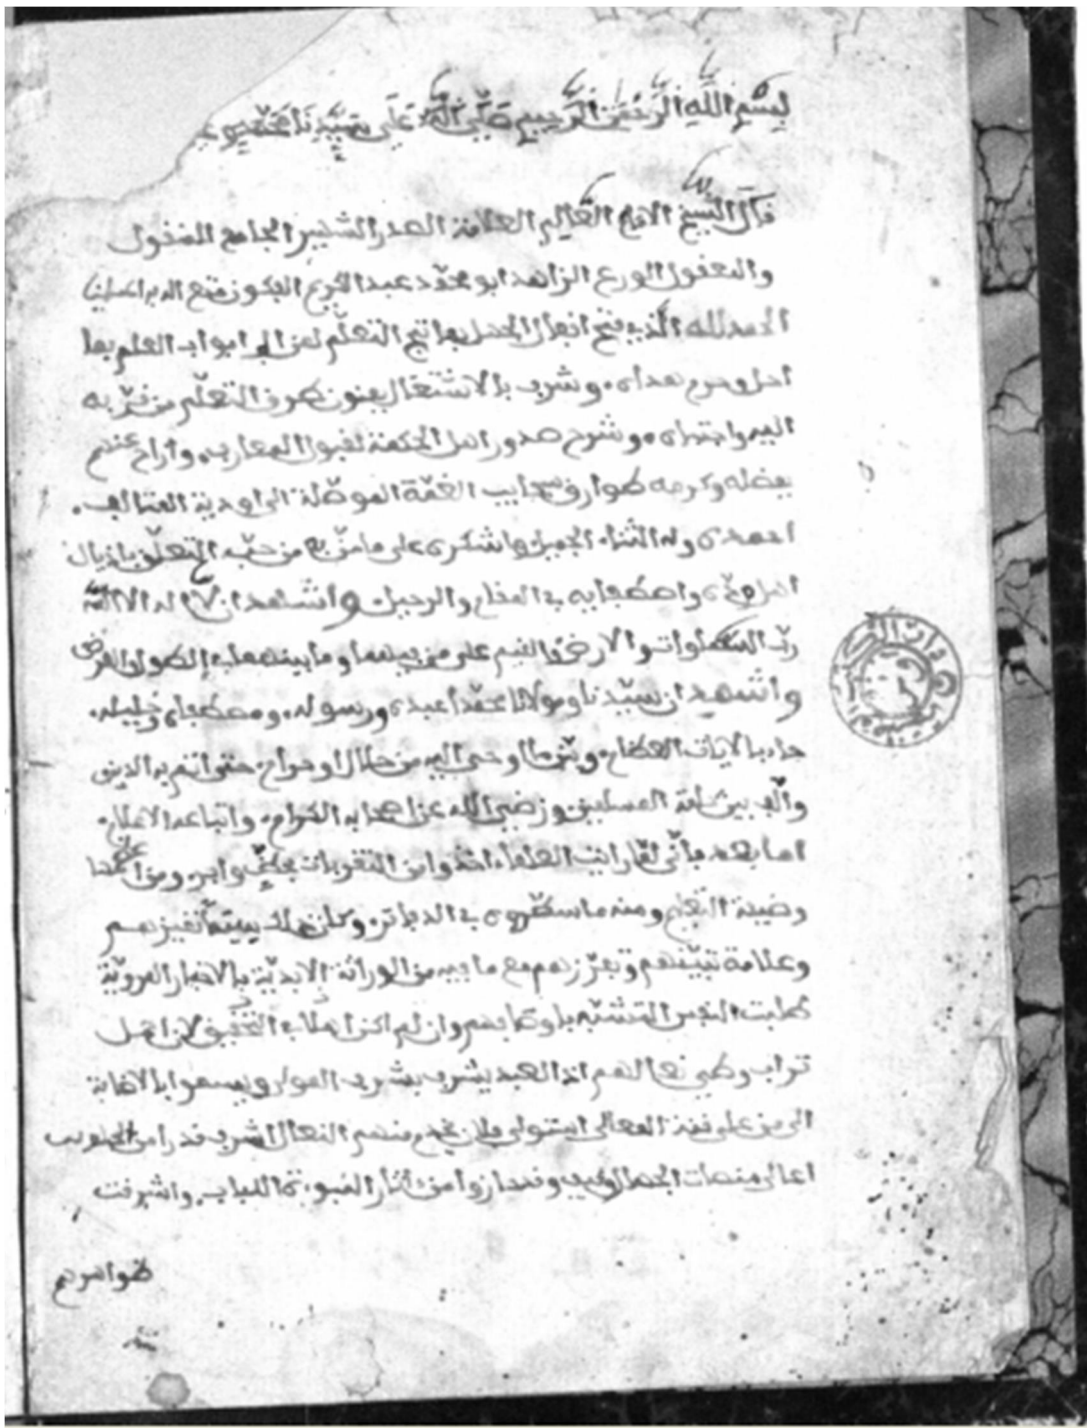 بسم الله الرحمن الرحيم صلى الله على سيدنا محمد و
قال الشيخ الامام العالم العلامة الصدر الشهير الجامع المنقول
والمعقول الورع الزاهد ابو محمد عبد الكريم البكون متع الله
الحمد لله الذي فتح اقفال الجهل بمفاتح التعلم ابواب العلم بما
احل وحرم وشرب بالاشتغال بفنون طرف التعلم من قربه
اليه واجتباه وشرح صدور اهل الحكمة لقبول المعارف وازاح عنهم
بفضله وكرمه طوارق سحايب الغمة الموصلة الى اودية المتالف
احمده وله الثناء الجميل واشكره على ما من به من حب التعلق باذيال
اهل واصطفايه في المقام والرحيل واشهد ان لا اله الا الله
رب السماوات والارض والقيم على من فيهما وما بينهما الطول والعرض
واشهد ان سيدنا ومولانا محمدا عبده ورسوله ومصطفاه وخليله
جاء بالايات العظام وبين ما اوحى اليه من حلال او حرام حتى اتم به الدين
والف بين كلمة المسلمين ورضي الله عن اصحابه الكرام واتباعه الاعلام
اما بعد فاني لما رايت العلماء اخذوا من القربات بحظ وافر ومن
وضيبة التعلم ومنه ما سطروه في الدفاتر وكان ذلك
وعلامة تبينهم وتعززهم مع ما فيه من الوراثة الابدية بالاخبار المروية
طلبت النفس التشبه باوصافهم وان لم اكن اهلا في التحقيق لان احمل
تراب وطئ نعالهم اذ العبد يشرب بشرب الموارد ويسموا بالاضافة
الى من على قنة المعالي استولى ولان يخدم منهم النعال اشرف قدرا من
اعالي منصات الجمال وقد حازوا من اثار النبوءة اللباب واشرفت
ظواهرهم